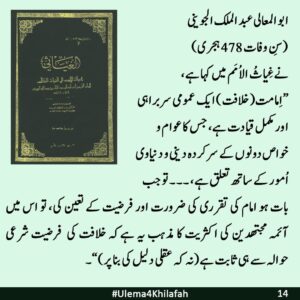 ابوالمعالی عبد الملک الجوینی
(سنِ وفات 478 ہجری)
نے غیاثُ الاُمَم میں کہا ہے،
”اِمامت (خلافت) ایک عمومی سربراہی
اور مکمل قیادت ہے، جس کا عوام و
خواص دونوں کے سرکردہ دینی و دنیاوی
اُمور کے ساتھ تعلق ہے،۔۔۔تو جب
بات ہو امام کی تقرری کی ضرورت اور فرضیت کے تعین کی، تو اس میں
آئمہ مجتہدین کی اکثریت کا مذہب یہ ہے کہ خلافت کی فرضیت شرعی
حوالہ سے ہی ثابت ہے (نہ کہ عقلی دلیل کی بنا پر)“۔
الغياثي
#Ulema4Khilafah
14